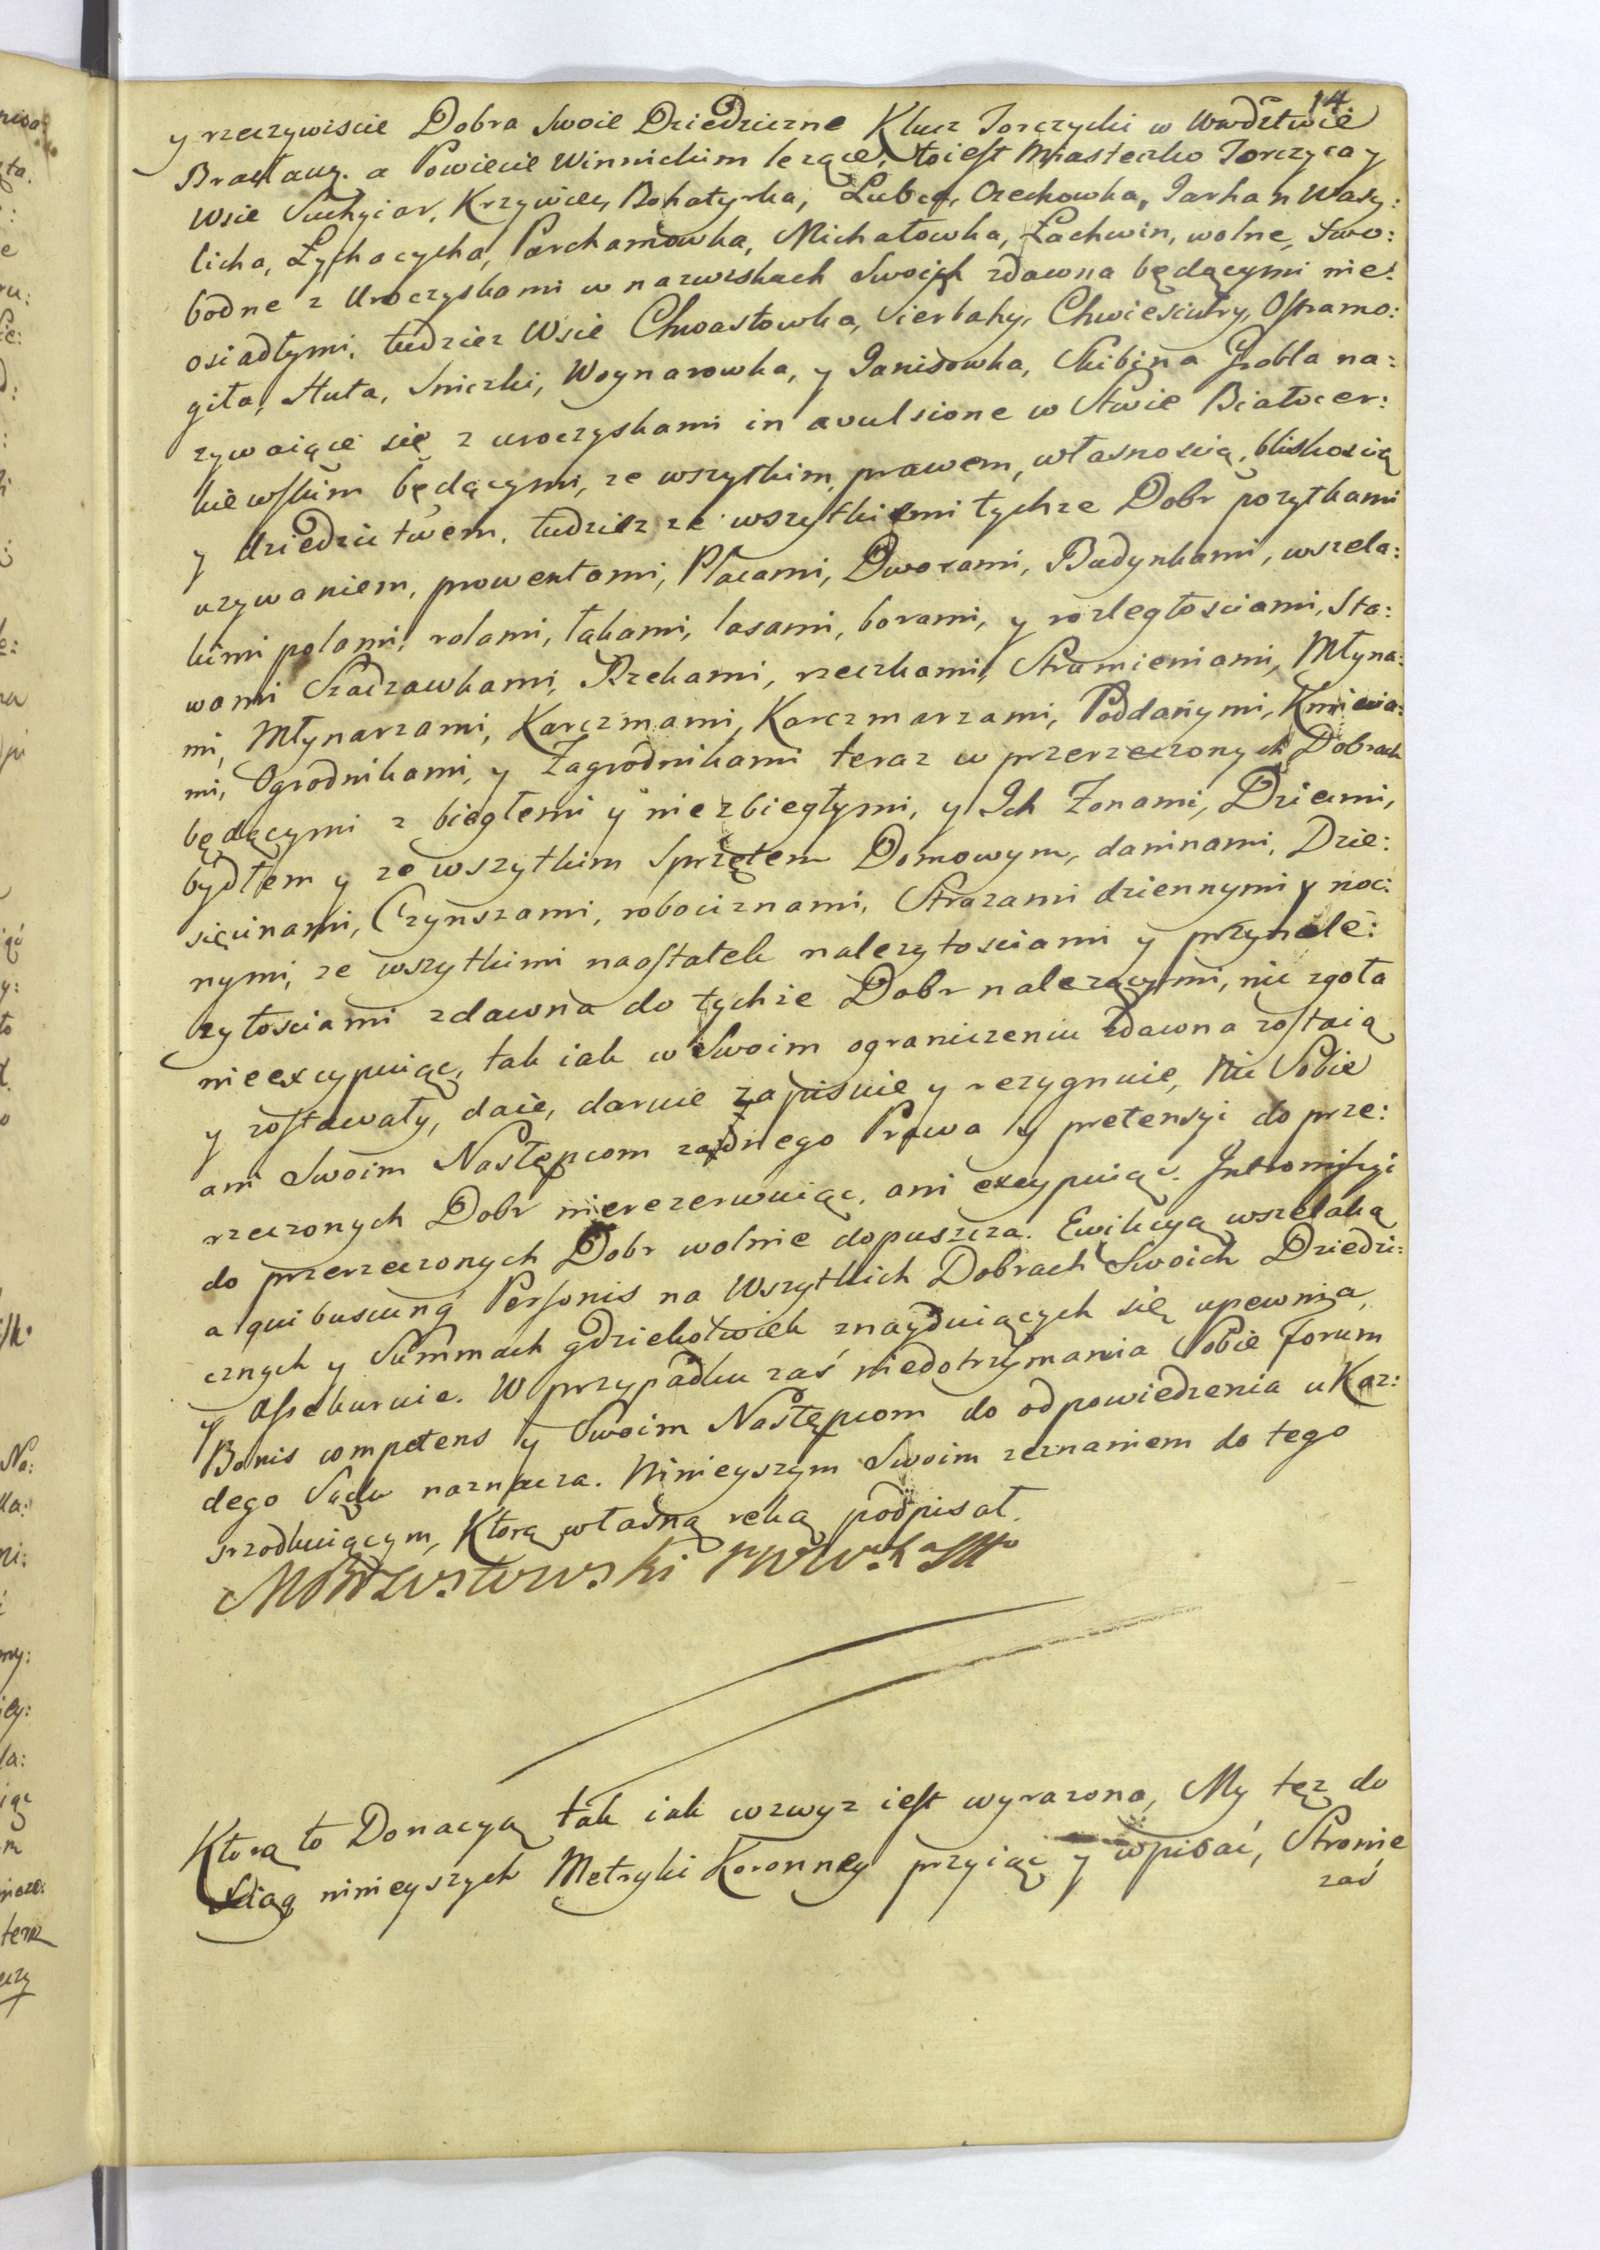 14
y rzeczywiscie Dobra Swoie Dziedziczne Klucz Torczycki w Wwdztwie
Bracław. a Powiecie Winnickim lezące, toiest Miasteczko Torczyca y
Wsie Suchyiar, Krzywiec, Bohatyrka, Lubcza, Orechowka, Jarhan Wasy:
licha, Łychacycha, Parchamowka, Michałowka, Łachwin, wolne, Swo:
bodne z Uroczyskami w nazwiskach Swoich zdawna będącymi nie:
osiadłymi, tudziez Wsie Chwastowka, Sierbaky, Chwiesciury, Ostramo:
giła, Huta, Sniczki, Woynarowka, y Janisowka, Skibina Grobla na:
zywaiące się z uroczyskami in avulsione w Stwie Białocer:
kiewskim będącymi, ze wszytkim prawem, własnoscią, bliskoscią
y dziedzictwem, tudziez ze wszytkiemi tychze Dobr pozytkami
uzywaniem, prowentami, Placami, Dworami, Budynkami, wszela:
kimi polami, rolami, łąkami, lasami, borami, y rozległosciami, Sta:
wami Szadzawkami, Rzekami, rzeczkami, Strumieniami, Młyna:
mi, Młynarzami, Karczmami, Karczmarzami, Poddanymi, Kmiecia:
mi, Ogrodnikami, y Zagrodnikami teraz w przerzeczonych Dobrach
będącymi zbiegłemi y niezbiegłymi, y Ich Zonami, Dziecmi,
bydłem y ze wszytkim Sprzętem Domowym, daninami, Dzie:
sięcinami, Czynszami, robociznami, Strazami dziennymi y noc:
nymi, ze wszytkimi naostatek nalezytosciami y przynale:
zytosciami zdawna do tychze Dobr nalezącymi, nic zgoła
nieexcypuiąc, tak iak w Swoim ograniczeniu zdawna zostaią
y zostawały, daie, daruie zapisuie y rezygnuie, Nic Sobie
ani Swoim Następcom zadnego Prawa y pretensyi do prze:
rzeczonych Dobr nierezerwuiąc, ani excypuiąc. Intromissyi
do przerzeczonych Dobr wolnie dopuszcza. Ewikcyą wszelaką
a quibuscunq Personis na Wszytkich Dobrach Swoich Dziedzi:
cznych y Summach gdziekolwiek znayduiących się upewnia,
y assekuruie. W przypadku zaś niedotrzymania Sobie forum
Bonis competens y Swoim Następcom do odpowiedzenia u Kaz:
dego Sądu naznacza. Ninieyszym Swoim zeznaniem do tego
srzodkuiącym, Ktorą własną ręką podpisał.
Ktorą to Donacyą tak iak wzwyz iest wyrazona, My tez do
Xiąg ninieyszych Metryki Koronney przyiąc y wpisać, Stronie
zaś